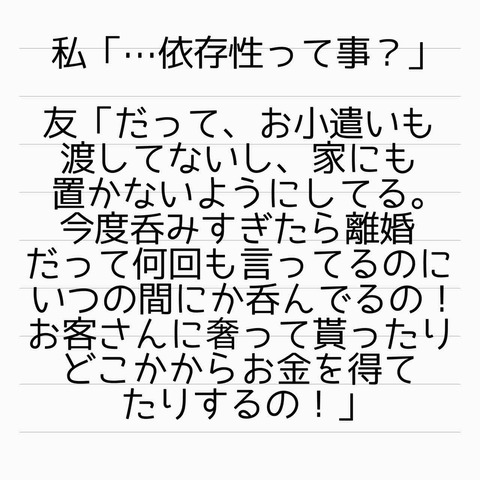 私「…依存性って事？」
友「だって、お小遣いも
渡してないし、家にも
置かないようにしてる。
今度呑みすぎたら離婚
だって何回も言ってるのに
いつの間にか呑んでるの！
お客さんに奢って貰ったり
どこかからお金を得て
たりするの！」